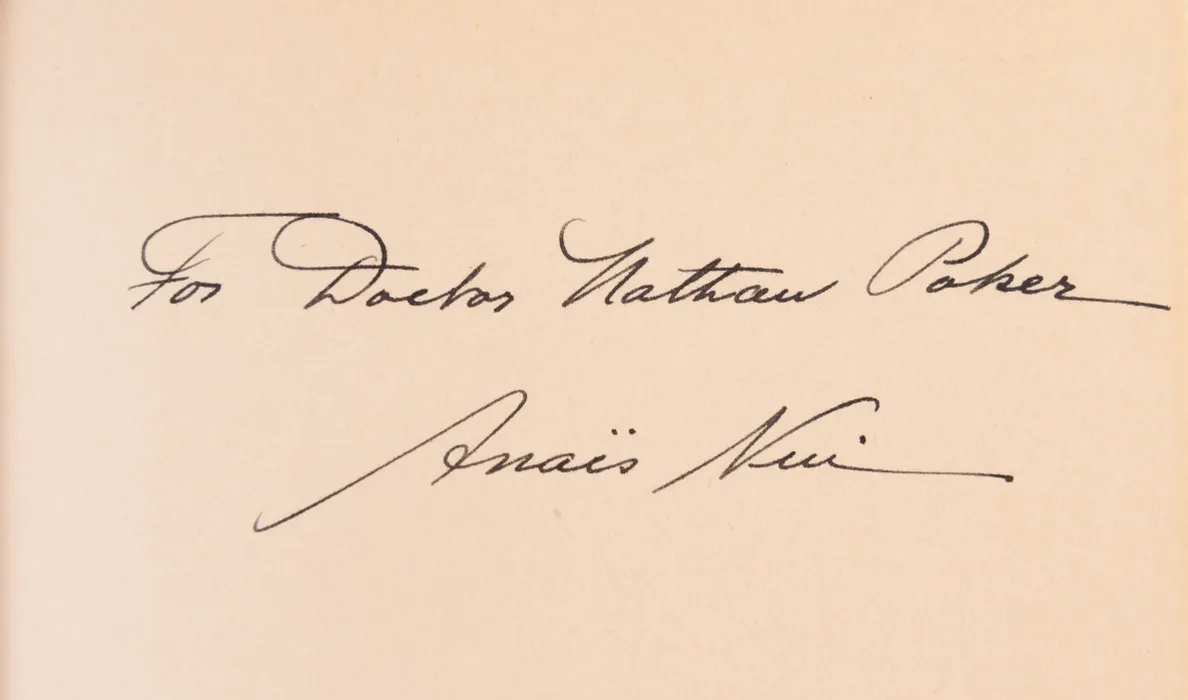 For Doctor Nathan Poker
Anaïs Nin